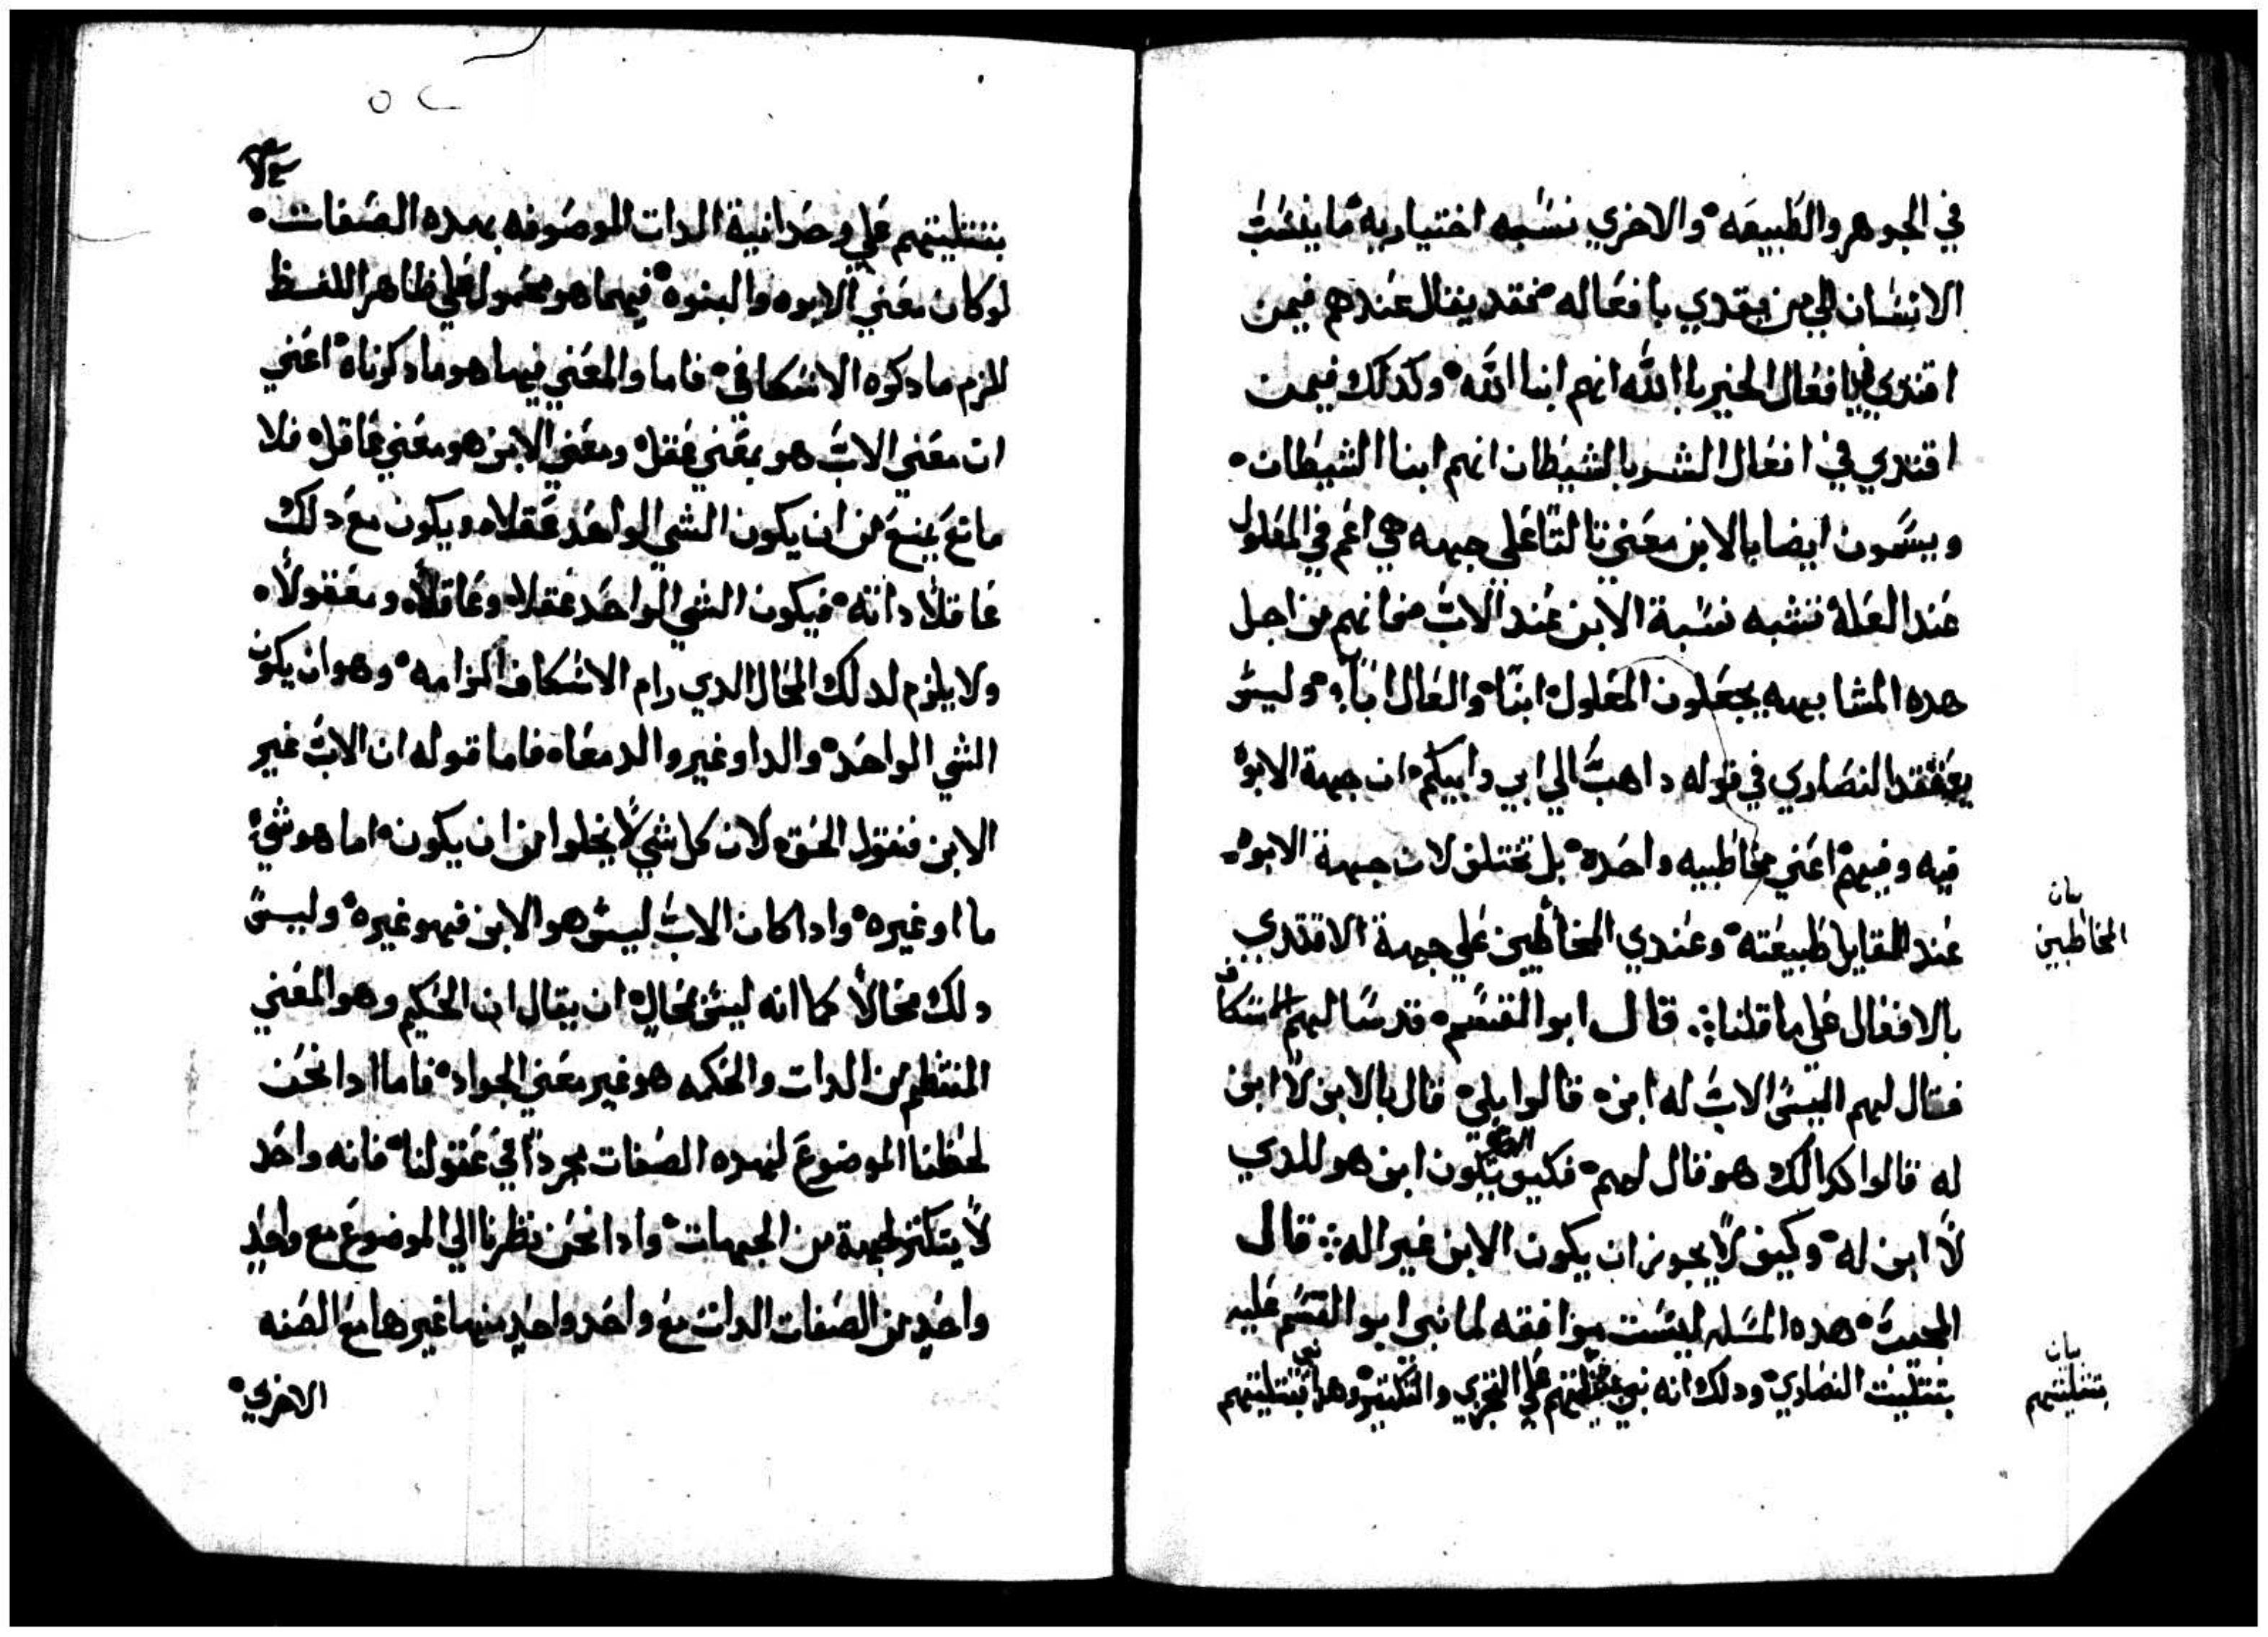 في الجوهر والطبيعه والاخري نسبه اختياريه ما ينسب
الانسان الي من يقتدي بافعاله فقد يقال عندهم فيمن
اقتدي في افعال الخير باالله انهم ابنا الله وكدلك فيمن
اقتدي في افعال الشر بالشيطان انهم ابنا الشيطان
ويسمون ايضا بالابن معني تالتا علي جهه هي اعم في المعلول
عند العله تشبه نسبة الابن عند الاب فانهم من اجل
هده المشابهه يجعلون المعلول ابنا والعال ابا وليس
يعتقد النصاري في قوله داهب الي ابي وابيكم ان جهة الابوه
فيه وفيهم اعني مخاطبيه واحده بل تختلف لان جهة الابوه
عند القايل طبيعته وعندي المخاطبين علي جهة الاقتدي
بالافعال علي ما قلنا قال ابو القسم قد سالهم الاسكاف
فقال لهم اليس الاب له ابن قالوا بلي قال بالابن لا ابن
له قالوا كدالك هو قال لهم فكيف يكون ابن هو للدي
لا ابن له وكيف لا يجوز ان يكون الابن غير اله قال
المجيب هده المسله ليست موافقه لما نبي ابو القسم عليه
بتتليت النصاري ودلك انه نبي تتليتهم علي التجزي والتكتير وهدا بتتليتهم
بيان
المخاطبين
بيان
بتتليتهم
بتتليتهم علي وحدانية الدات الموصوفه بهده الصفات
لو كان معني الابوه والبنوه فيهما هو محمول علي ظاهر اللفظ
للزم ما دكره الاسكافي فاما والمعني فيها هو ما دكرناه اعني
ان معني الاب هو بمعني عقل ومعني الابن هو معني عاقل فلا
مانع يمنع من ان يكون الشي الواحد عقلا ويكون مع دلك
عاقلا داته فيكون الشي الواحد عقلا وعاقلا ومعقولا
ولا يلزم لدلك المحال الدي رام الاسكاف الزامه وهو ان يكون
الشي الواحد والدا وغير والد معا فاما قوله ان الاب غير
الابن فنقول الحق لان كل شي لا يخلوا من ان يكون اما هو شي
ما او غيره وادا كان الاب ليس هو الابن فهو غيره وليس
دلك محالا كما انه ليس محال ان يقال ان الحكيم وهو المعني
المنتظم من الدات والحكمه هو غير معني الجواد فاما ادا نحن
لحظنا الموضوع لهده الصفات مجردا في عقولنا فانه واحد
لا يتكتر لجهة من الجهات وادا نحن نظرنا الي الموضوع مع واحد
واحد من الصفات الدات مع واحد واحد منها غيرها مع الصفه
الاخري